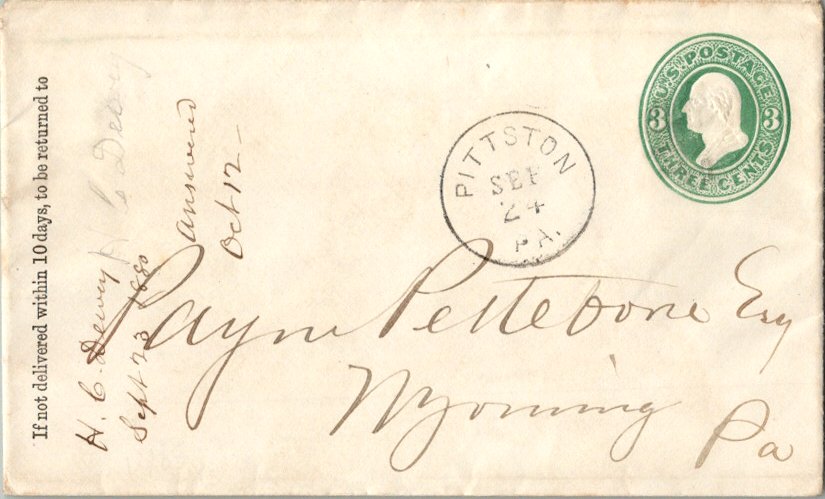 If not delivered within 10 days, to be returned to
H C Dewey
H. C. Dewey
Sept 23 1880
Answered
Oct 12
PITTSTON
SEP
24
PA.
U.S. POSTAGE
3 3
THREE CENTS
Payne Pettebone Esq
Wyoming
Pa